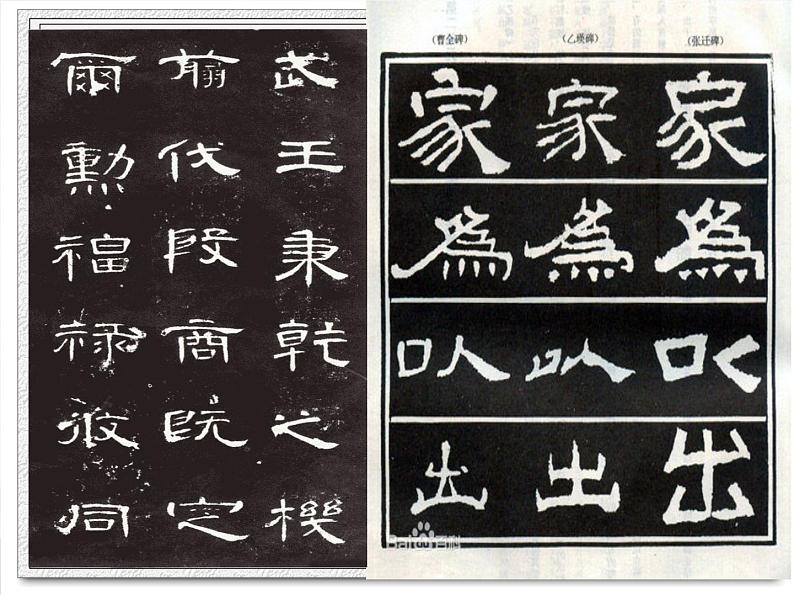 武王秉乾之機
翦伐殷商既定
爾勳福祿攸同
(曹全碑) (乙瑛碑) (张迁碑)
家 家 家
為 為 為
以 以 以
出 出 出
Bai百科